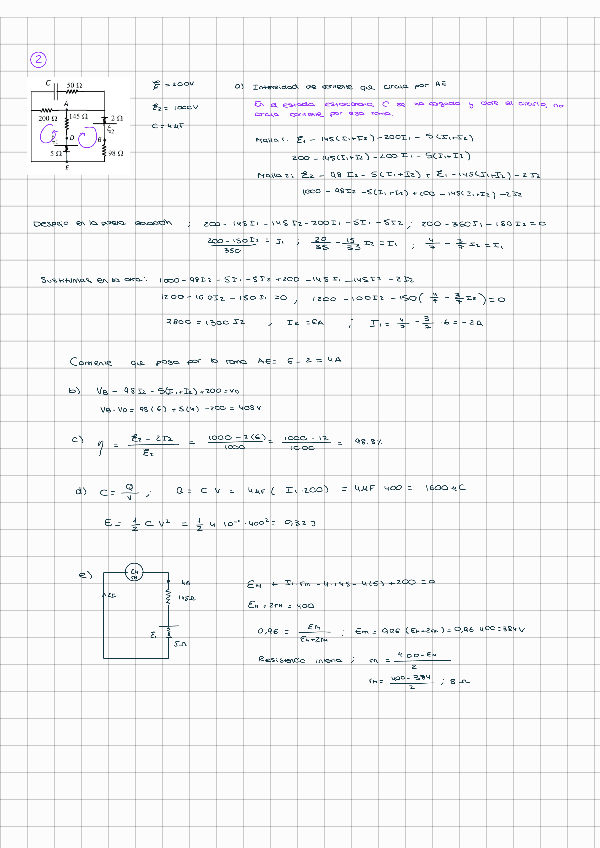 2
C 50 Ω
A
200 Ω 145 Ω 2 Ω
D B
5 Ω 98 Ω
E
= 200V
ε2 = 1000V
C = 4µF
a) Intensidad de corriente que circula por AE
En el estado estacionario, C se ha cargado y abre el circuito, no
circula corriente por esa rama.
Malla 1: ε1 - 145(I1+I2) - 200I1 - 5(I1+I2)
200 - 145(I1+I2) - 200I1 - 5(I1+I2)
Malla 2: ε2 - 98I2 - 5(I1+I2) + ε1 - 145(I1+I2) - 2I2
1000 - 98I2 - 5(I1+I2) + 200 - 145(I1+I2) - 2I2
Despejo en la primera ecuación ; 200 - 145I1 - 145I2 - 200I1 - 5I1 - 5I2 ; 200 - 350I1 - 150I2 = 0
200 - 150I2 / 350 = I1 ; 20/35 - 15/35 I2 = I1 ; 4/7 - 3/7 I2 = I1
Sustituimos en la otra: 1000 - 98I2 - 5I1 - 5I2 + 200 - 145I1 - 145I2 - 2I2
1200 - 100I2 - 150(4/7 - 3/7 I2) = 0
7800 = 1300I2 , I2 = 6A ; I1 = 4/7 - 3/7 6 = -2A
Corriente que pasa por la rama AE = 6 - 2 = 4A
b) VB - 98I2 - 5(I1+I2) + 200 = VD
VB - VD = 98(6) + 5(4) - 200 = 408V
c) η = ε2 - 2I2 / ε2 = 1000 - 2(6) / 1000 = 1000 - 12 / 1000 = 98.8%
d) C = Q/V ; Q = C V = 4µF (I1·200) = 4µF 400 = 1600µC
E = 1/2 C V² = 1/2 4 10⁻⁶ · 400² = 0,32J
e) EM
rM
4A
2A
145Ω
E1
5Ω
EM + I1·rM - 4·145 - 4(5) + 200 = 0
EM + 2rM = 400
0,96 = EM / EM+2rM ; EM = 0,96 (EM+2rM) = 0,96 400 = 384V
Resistencia interna ; rM = 400 - EM / 2
rM = 400 - 384 / 2 ; 8 Ω